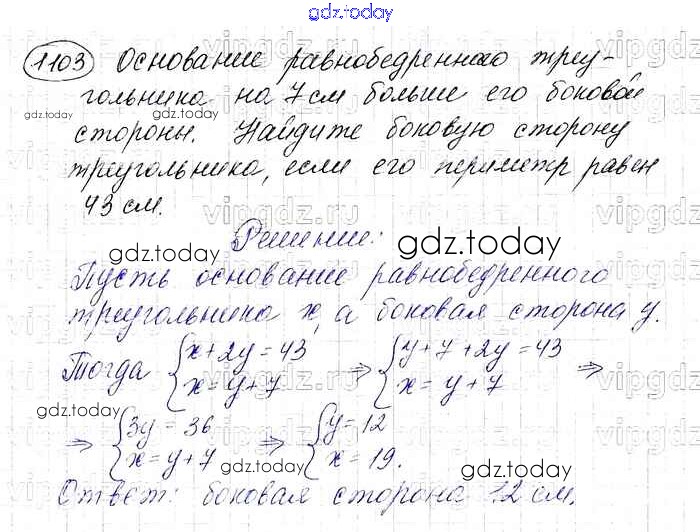 gdz.today
1103 Основание равнобедренного треу-
гольника на 7 см больше его боковой
стороны. Найдите боковую сторону
треугольника, если его периметр равен
43 см.
Решение:
Пусть основание равнобедренного
треугольника x, а боковая сторона y.
Тогда { x+2y=43 x=y+7 ⇒ { y+7+2y=43 x=y+7 ⇒
⇒ { 3y=36 x=y+7 ⇒ { y=12 x=19.
Ответ: боковая сторона 12 см.